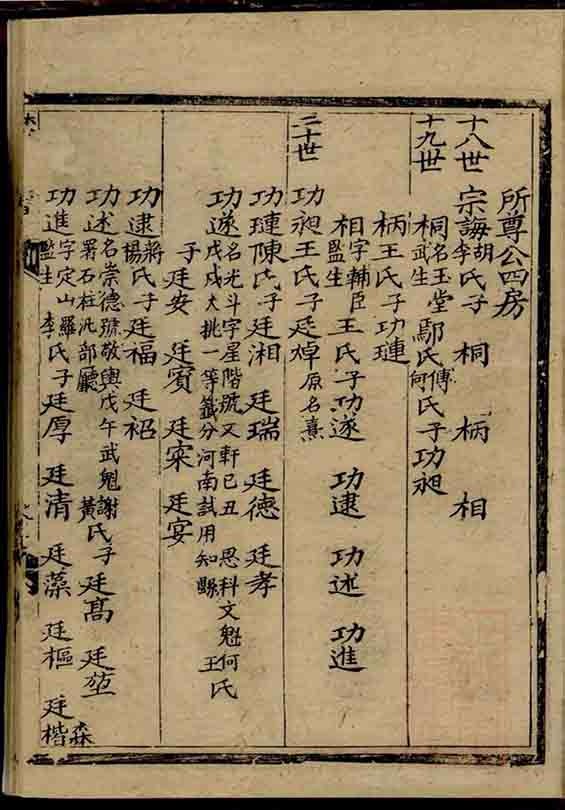 所尊公四房
十八世 宗誨胡李氏子 桐 柄 相
十九世 桐名玉堂武生鄢氏傅何氏子功昶
柄王氏子功璉
相字輔臣監生王氏子功遂 功逮 功述 功進
二十世 功昶王氏子廷焯原名熹
功璉陳氏子廷湘 廷瑞 廷德 廷孝
功遂名光斗字星階號又軒己丑恩科文魁何王氏
戊戌大挑一等籤分河南試用知縣
子廷安 廷賓 廷寀 廷宴
功逮蔣楊氏子廷福 廷祒
功述名崇德號敬輿戊午武魁謝黃氏子廷高 廷堃
署石柱汛部廳
功進字定山監生羅李氏子廷厚 廷清 廷藻 廷樞 廷楷 森